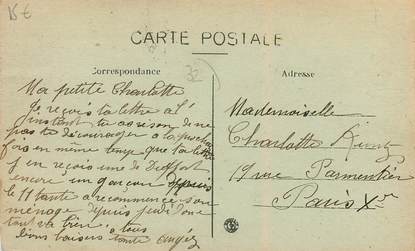 15 €
CARTE POSTALE
Correspondance
32
Adresse
Ma petite Charlotte
Je reçois ta lettre à l'
instant tu as raison de ne
pas te décourager à la prochai
fois en même temps que ta lettre
j'en reçois une de
encore un garçon depuis
le 11 tante a recommencé son
ménage depuis jeudi
tout va bien à tous
bons baisers tante
Mademoiselle
Charlotte
19 rue Parmentier
Paris X